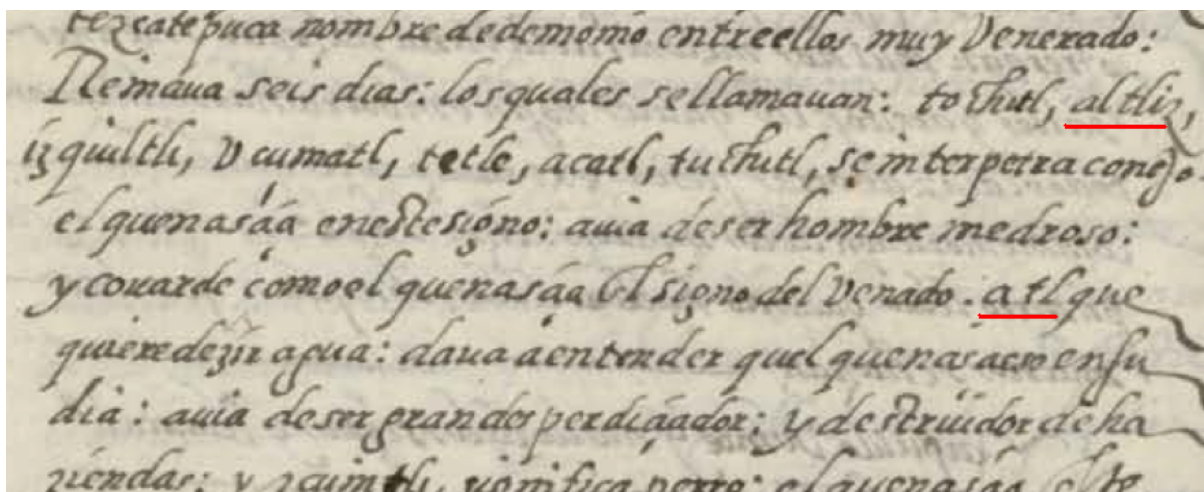 tezcatepuca nombre dedemonio entreellos muy Venerado:
Reinaua seis dias: losquales sellamauan: tochitl, altliz,
izquiltli, Vcumatl, tetle, acatl, tuchitl, se interpetra conejo.
elquenasçia enestesigno: auia deserhombre medroso:
y couarde comoel quenasçia El signo del Venado. atl que
quieredezir agua: daua aentender quel quenasciere ensu
dia: auia deser grandesperdiçiador: y destruidor deha
ziendas: y zcuintli, significa perro: elquenasçia